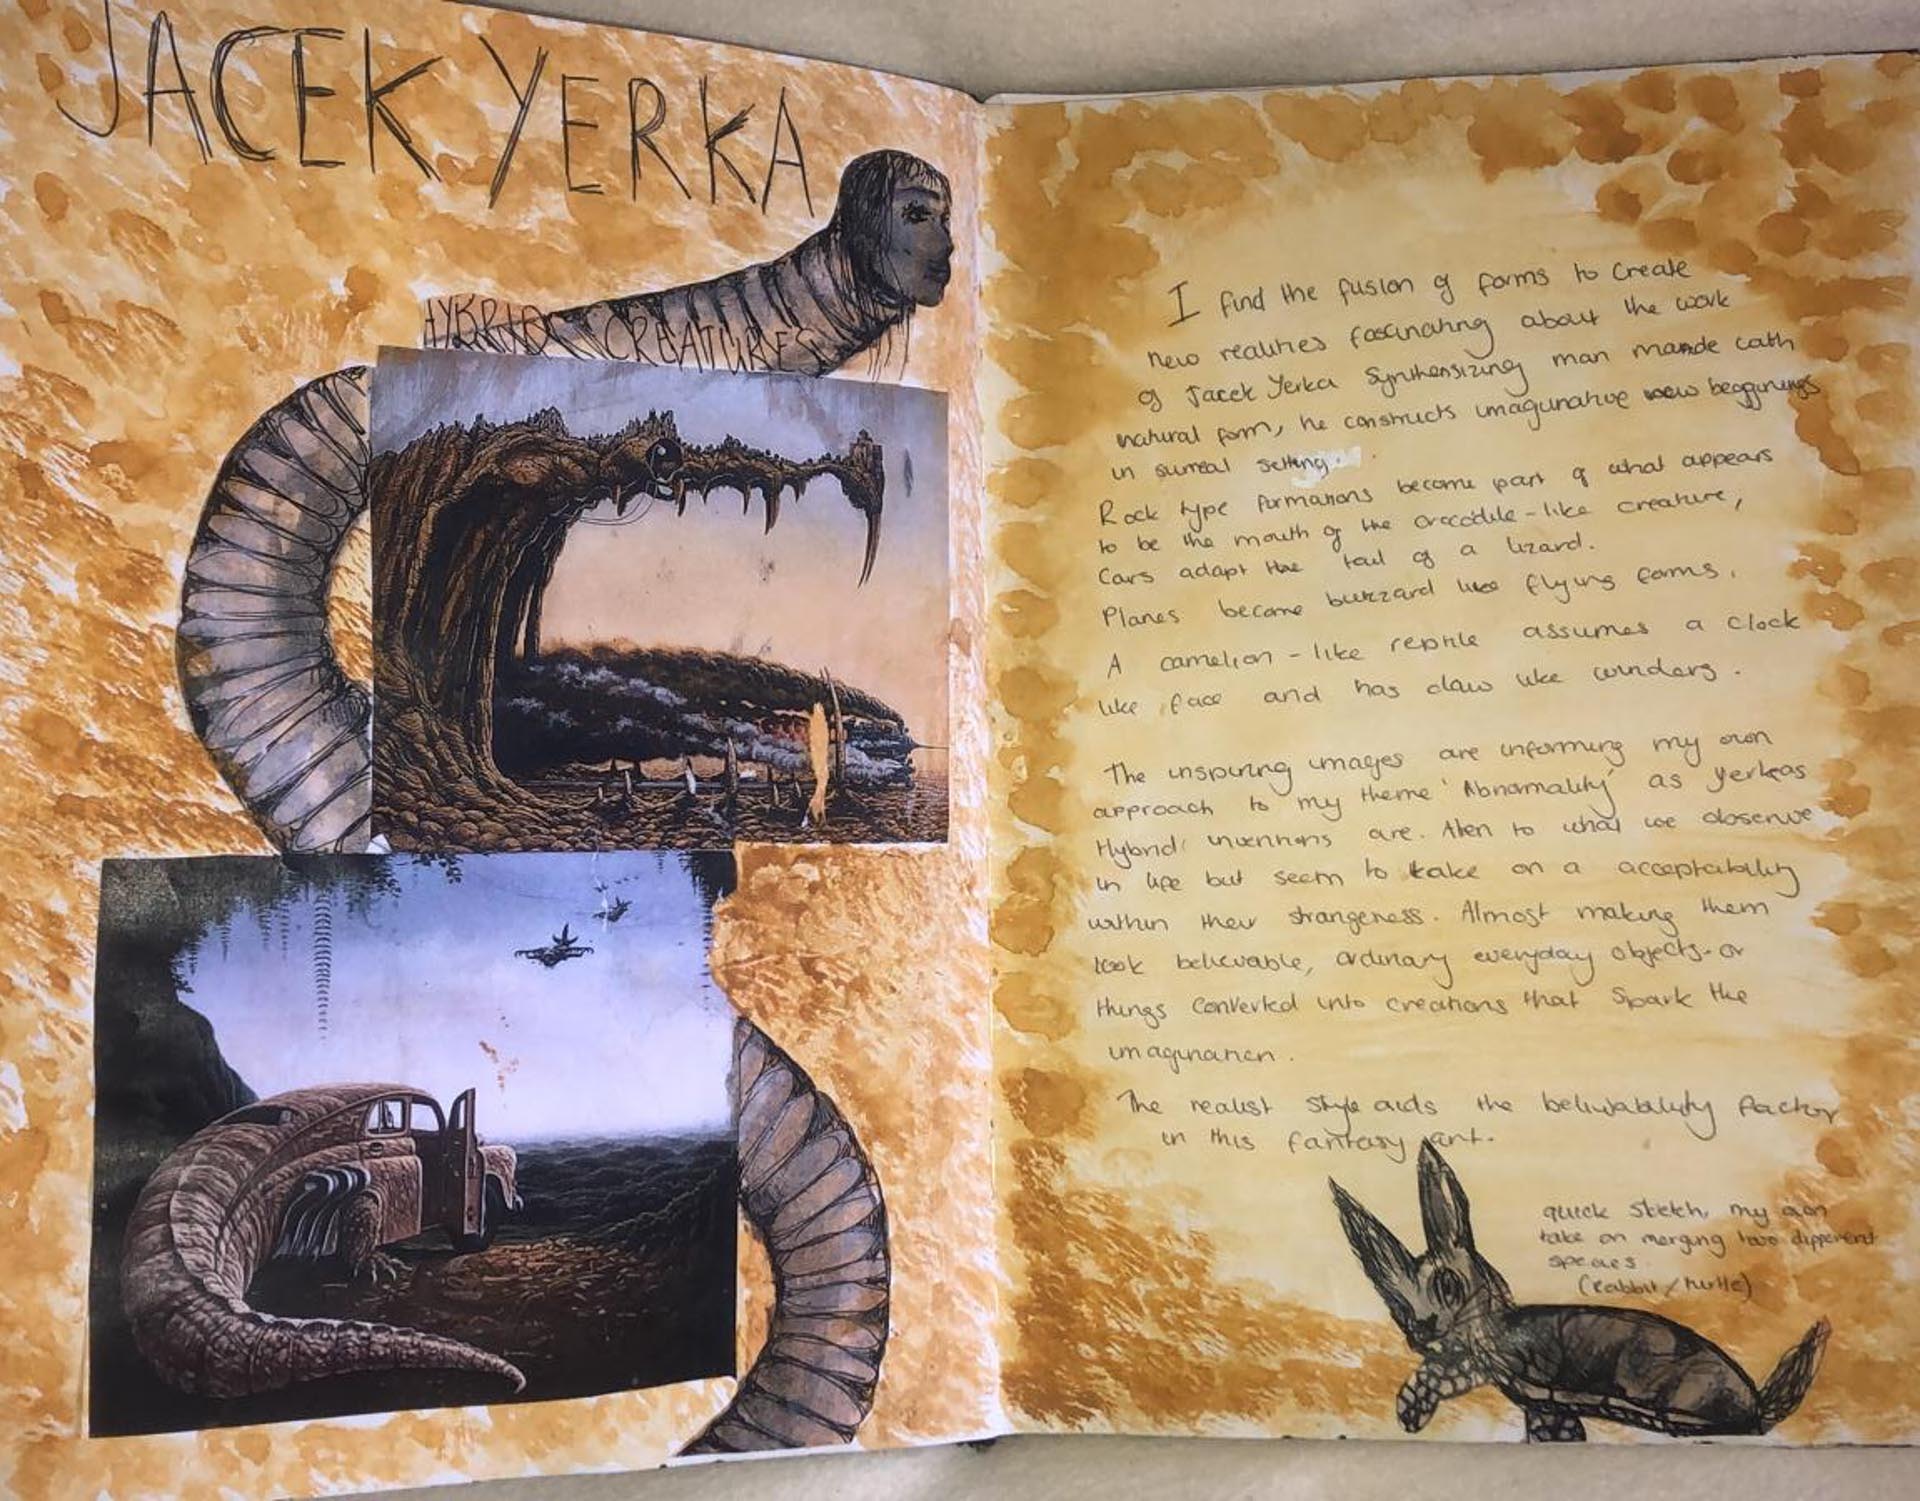 JACEK YERKA
HYBRID CREATURES
I find the fusion of forms to create
new realities fascinating about the work
of Jacek Yerka Synthensizing man mande with
natural form, he constructs imaginative new begginings
in surreal setting.
Rock type formations become part of what appears
to be the mouth of the crocodile-like creature,
Cars adapt the tail of a lizard.
Planes become buzzard like flying forms.
A camelion-like reptile assumes a clock
like face and has claw like winders.
The inspiring images are informing my own
approach to my theme 'Abnormality' as yerkas
Hybrid inventions are. Alien to what we observe
in life but seem to take on a acceptability
within their strangeness. Almost making them
look believable, ordinary everyday objects-or
things converted into creations that Spark the
imagination.
The realist Style aids the belivability factor
in this fantasy art.
quick Sketch, my own
take on merging two different
species.
(rabbit/turtle)